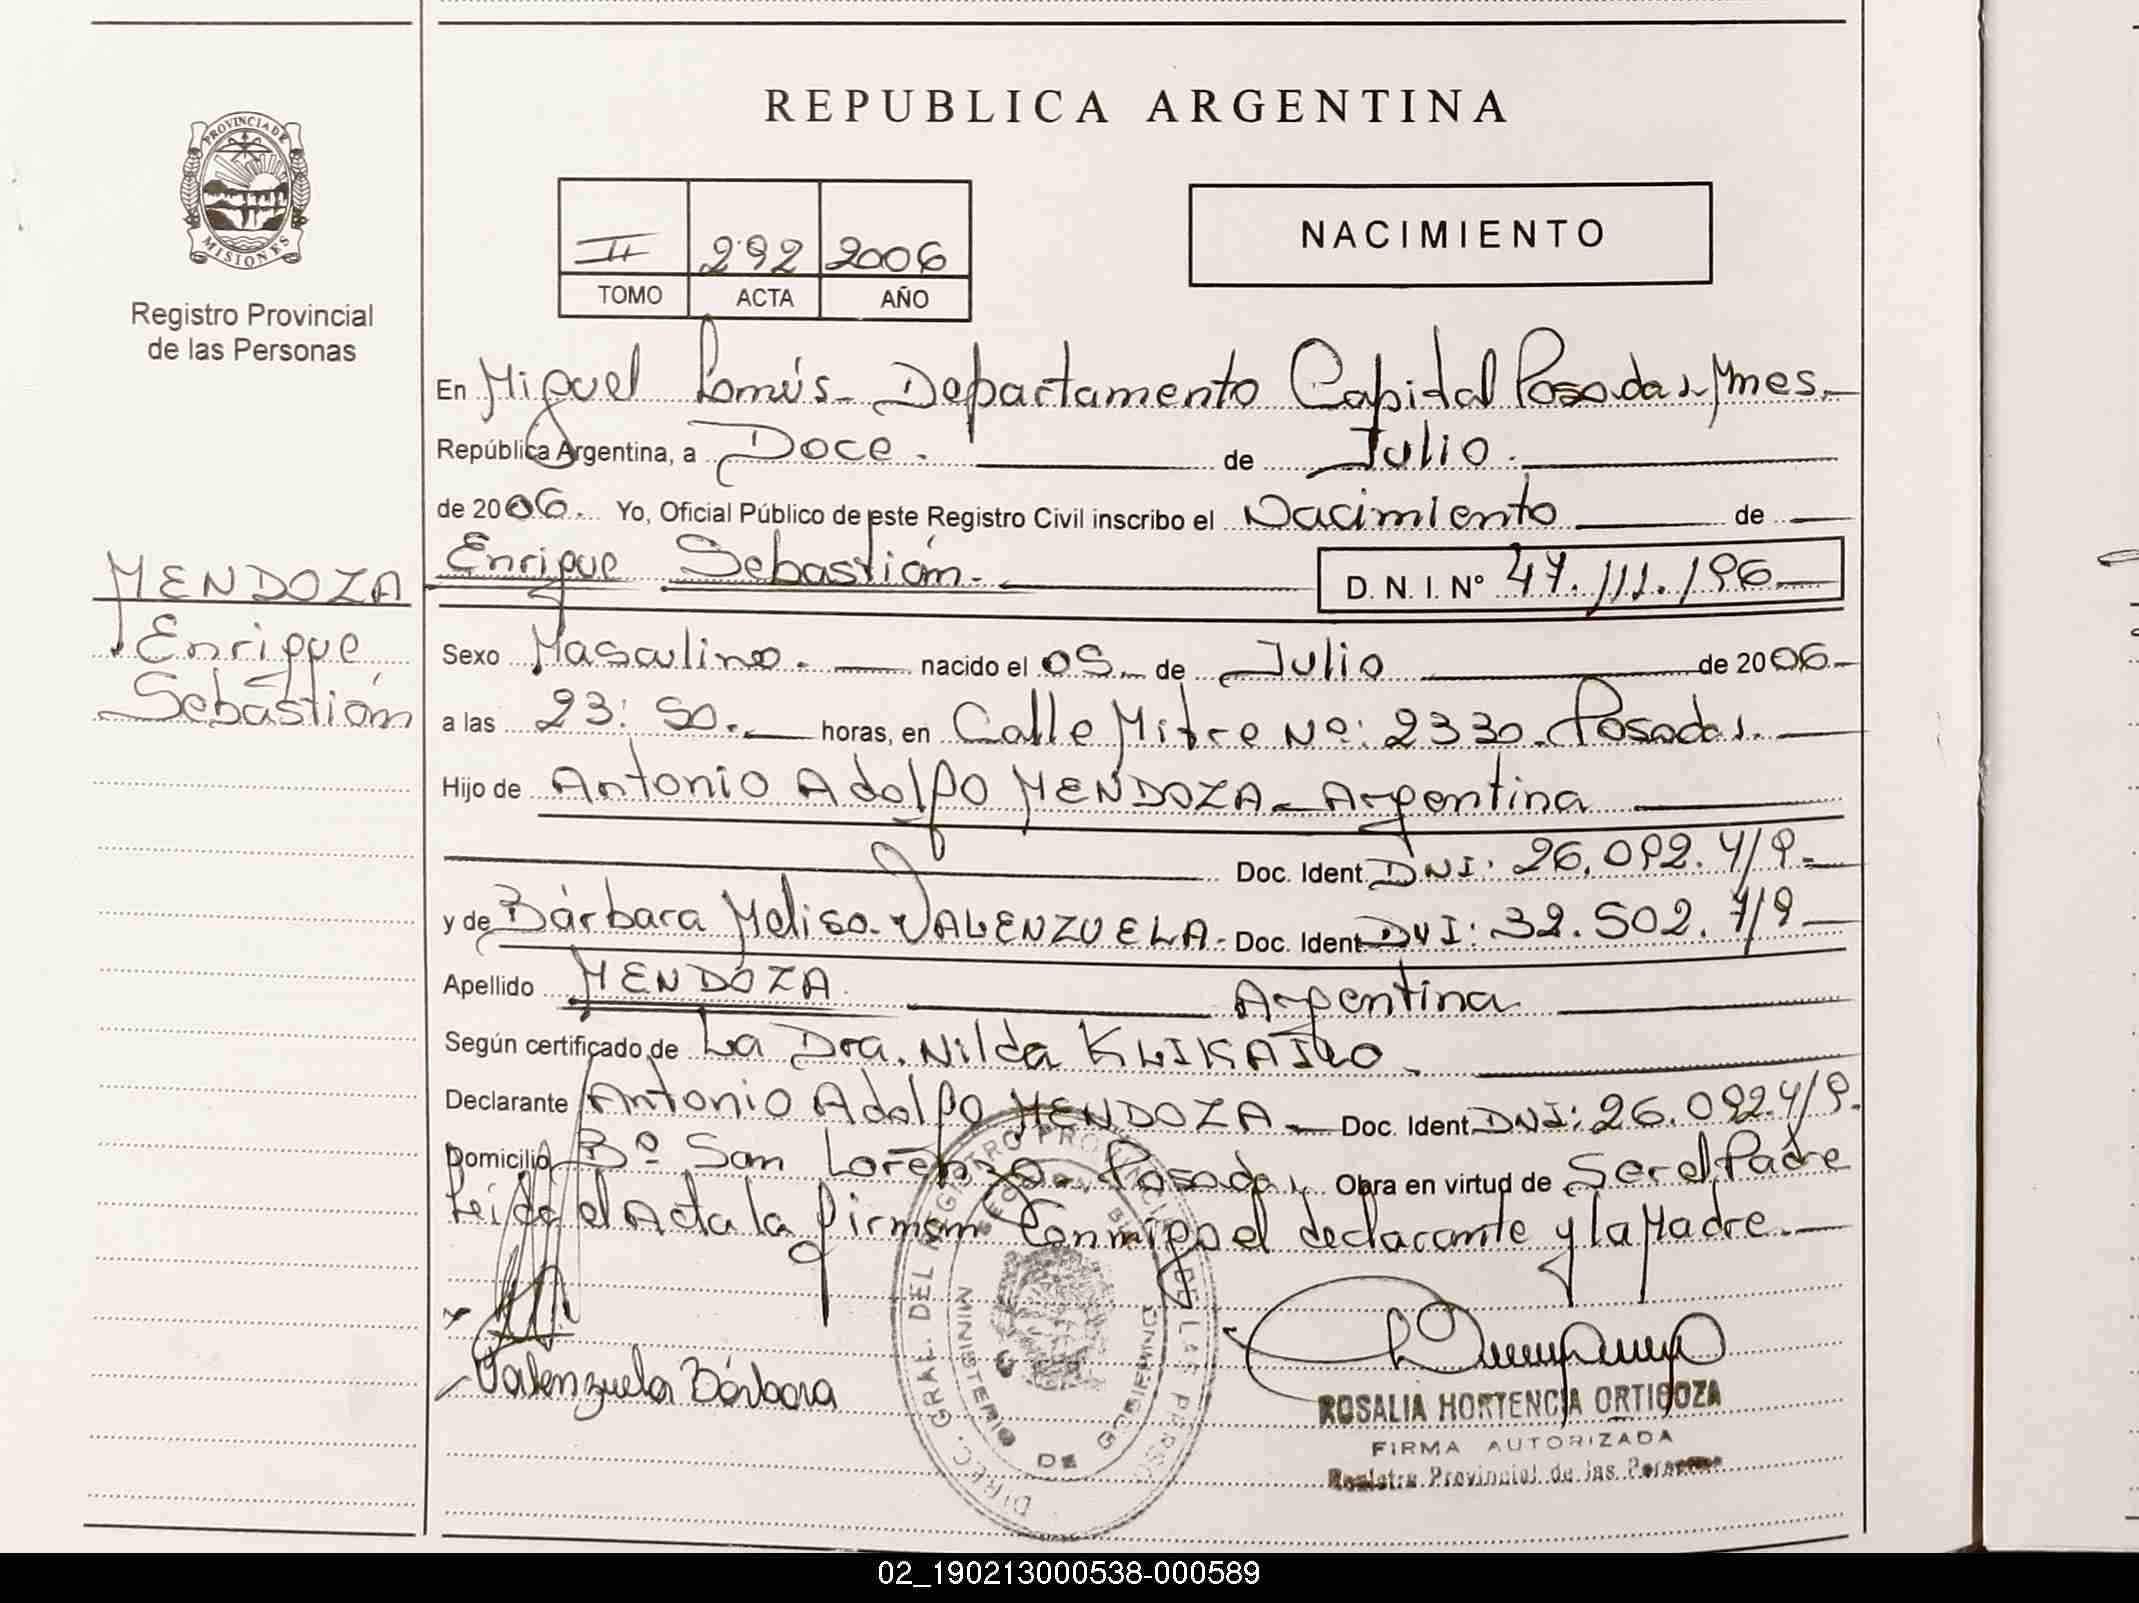 REPUBLICA ARGENTINA
PROVINCIA DE
MISIONES
Registro Provincial
de las Personas
II 292 2006
TOMO ACTA AÑO
NACIMIENTO
En Miguel Lanús - Departamento Capital Posadas Mnes.
República Argentina, a Doce. de Julio.
de 2006. Yo, Oficial Público de este Registro Civil inscribo el Nacimiento de
Enrique Sebastián. D. N. I. Nº 47.111.196
MENDOZA
Enrique
Sebastián
Sexo Masculino. nacido el 05 de Julio de 2006
a las 23:50. horas, en Calle Mitre Nº: 2330. Posadas.
Hijo de Antonio Adolfo MENDOZA - Argentina
Doc. Ident. DNI: 26.092.419.
y de Bárbara Melisa - VALENZUELA - Doc. Ident. DNI: 32.502.719
Apellido MENDOZA Argentina
Según certificado de La Dra. Nilda
Declarante Antonio Adolfo MENDOZA - Doc. Ident. DNI: 26.092.419.
Domicilio Bº San Lorenzo - Posadas Obra en virtud de Ser el Padre
Leída el Acta la firman Conmigo el declarante y la Madre.
Valenzuela Bárbara
DIREC. GRAL. DEL REGISTRO PROVINCIAL DE LAS PERSO
MINISTERIO DE GOBIERNO
ROSALIA HORTENCIA ORTIGOZA
FIRMA AUTORIZADA
Registro Provincial de las Personas
02_190213000538-000589